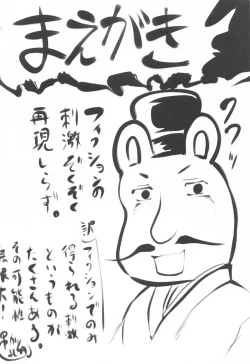 まえがき
フィクションの
刺激ぞくぞく
再現しらず。
フフ
訳)フィクションでのみ
得られる刺激
というものが
たくさんある。
その可能性
無限大!